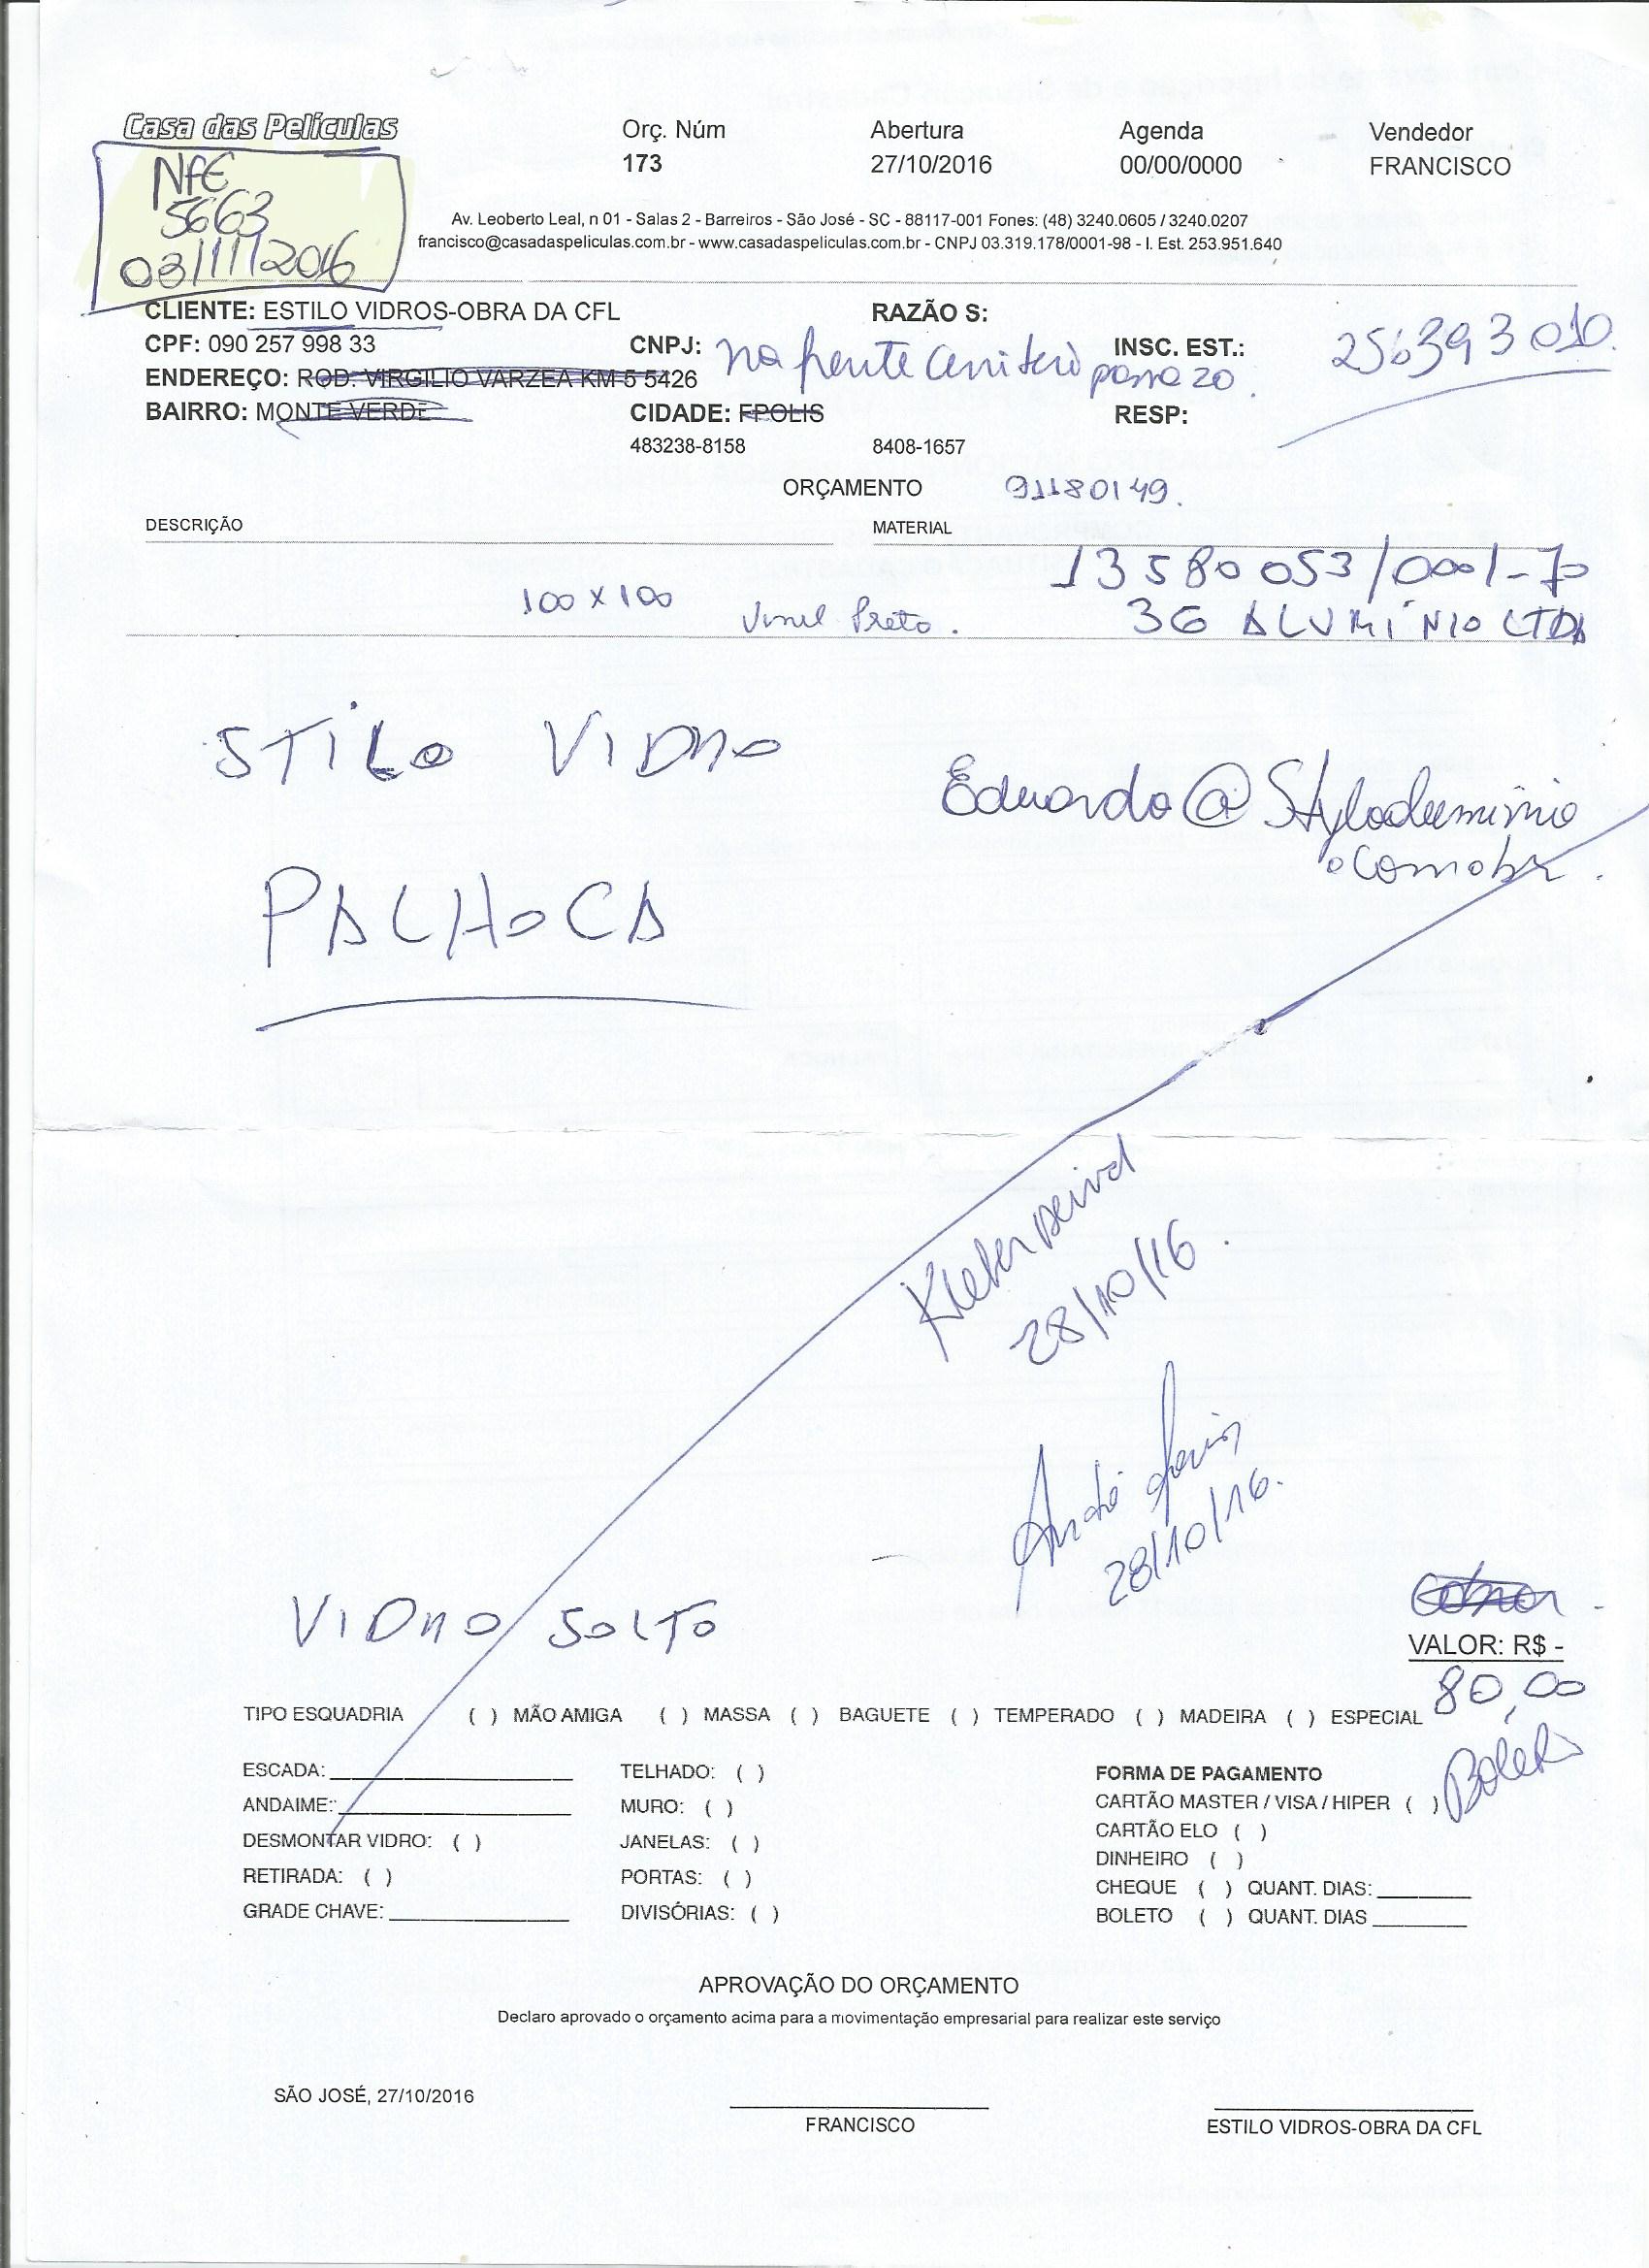 Casa das Películas
Orç. Núm Abertura Agenda Vendedor
173 27/10/2016 00/00/0000 FRANCISCO
NFE
5663
03/11/2016
Av. Leoberto Leal, n 01 - Salas 2 - Barreiros - São José - SC - 88117-001 Fones: (48) 3240.0605 / 3240.0207
francisco@casadaspeliculas.com.br - www.casadaspeliculas.com.br - CNPJ 03.319.178/0001-98 - I. Est. 253.951.640
CLIENTE: ESTILO VIDROS-OBRA DA CFL RAZÃO S:
CPF: 090 257 998 33 CNPJ: na frente INSC. EST.: 256393010
ENDEREÇO: ROD. VIRGILIO VARZEA KM 5 5426
BAIRRO: MONTE VERDE CIDADE: FPOLIS RESP:
483238-8158 8408-1657
ORÇAMENTO 91180149.
DESCRIÇÃO MATERIAL
13580053/0001-70
100 x 100 Vinil Preto. 3G ALUMÍNIO LTDA
STILO VIDRO
Eduardo@Styloaluminio
.com.br
PALHOCA
28/10/16.
André
28/10/16.
VIDRO SOLTO
VALOR: R$ -
80,00
TIPO ESQUADRIA ( ) MÃO AMIGA ( ) MASSA ( ) BAGUETE ( ) TEMPERADO ( ) MADEIRA ( ) ESPECIAL
Boleto
ESCADA: TELHADO: ( ) FORMA DE PAGAMENTO
ANDAIME: MURO: ( ) CARTÃO MASTER / VISA / HIPER ( )
DESMONTAR VIDRO: ( ) JANELAS: ( ) CARTÃO ELO ( )
RETIRADA: ( ) PORTAS: ( ) DINHEIRO ( )
GRADE CHAVE: DIVISÓRIAS: ( ) CHEQUE ( ) QUANT. DIAS:
BOLETO ( ) QUANT. DIAS
APROVAÇÃO DO ORÇAMENTO
Declaro aprovado o orçamento acima para a movimentação empresarial para realizar este serviço
SÃO JOSÉ, 27/10/2016
FRANCISCO ESTILO VIDROS-OBRA DA CFL